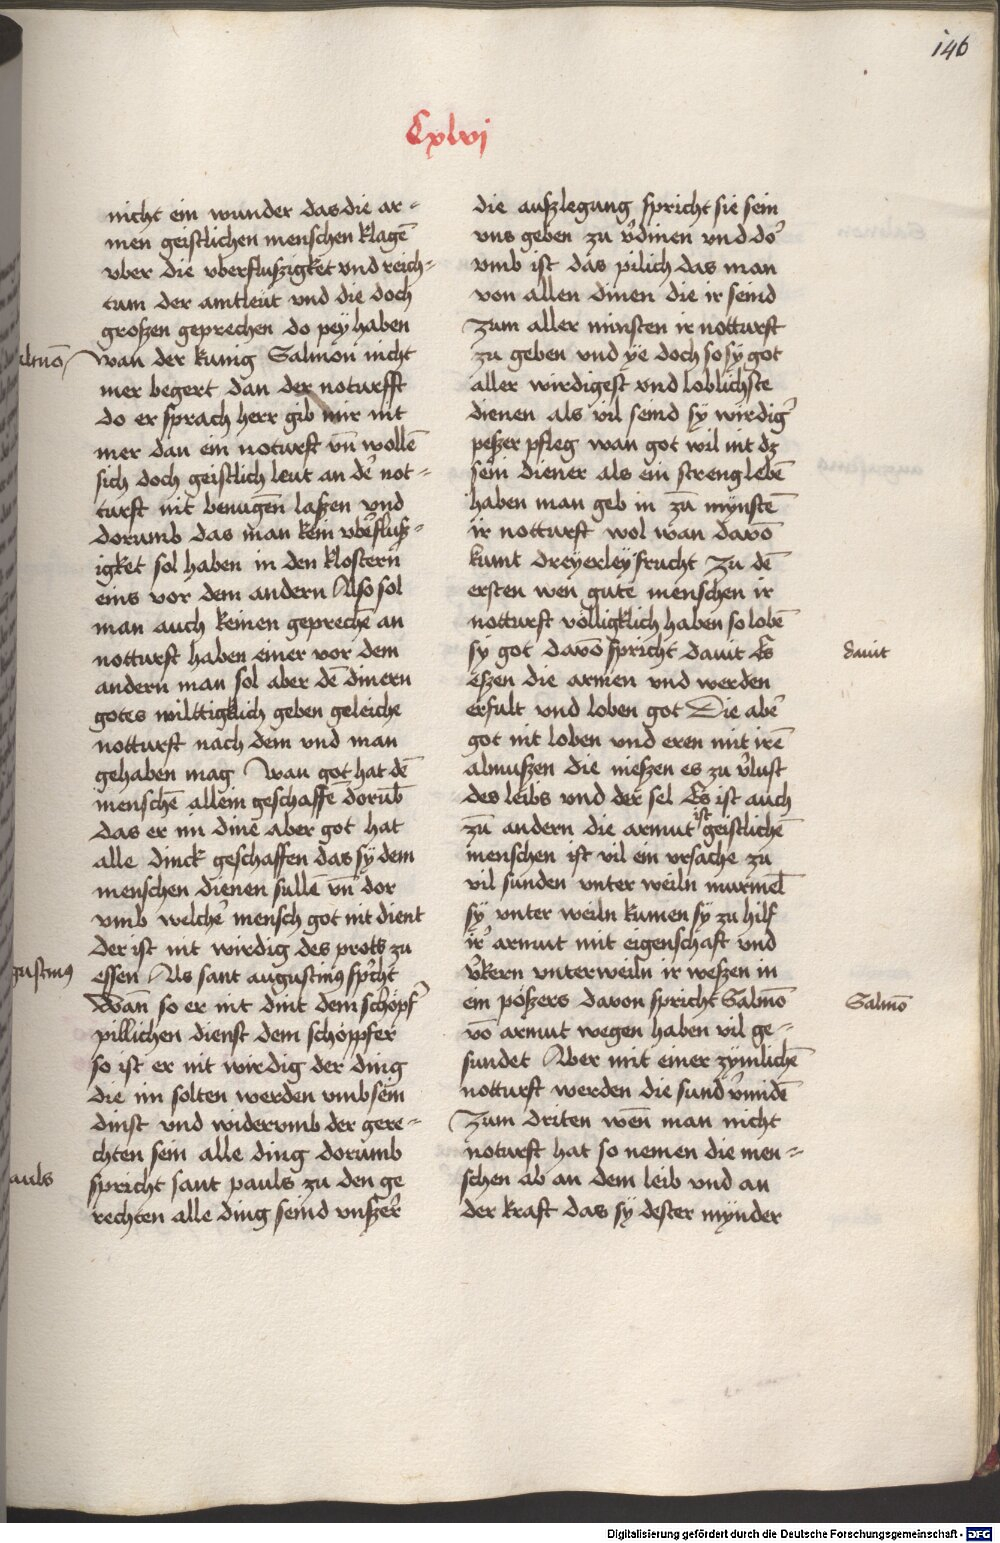 146
Cxlvi
nicht ein wunder das die ar-
men geistlichen menschen klagē
vber die vberfluszigket vnd reich-
tum der amtleüt vnd die doch
groszen geprechen do peÿ haben
wan der kunig Salmon nicht
mer begert dan der noturfft
do er sprach herr gib mir nit
mer dan ein noturft vn̄ wollē
sich doch geistlich leut an der̄ not-
turft nit benugen laszen vnd
dorumb das man kein vberflusz-
igket sol haben in den klostern
eins vor dem andern Also sol
man auch keinen geprechē an
notturft haben einer vor dem
andern man sol aber dē dinern
gotes milttigklich geben geleiche
notturft nach dem vnd man
gehaben mag Wan got hat dē
menschē allein geschaffē dorūb
das er im dine aber got hat
alle dinck geschaffen das sÿ dem
menschen dienen sullē vn̄ dor
vmb welcher mensch got nit dient
der ist nit wirdig des prots zu
essen Als sant augustinus spricht
Wan so er nit dint dem schöpfer
pillichen dienst dem schöpffer
so ist er nit wirdig der ding
die im solten werden vmb sein
dinst vnd widerumb der gere-
chten sein alle ding dorumb
spricht sant pauls zu den ge
rechten alle ding seind vnszer
almō
gustinus
auls
die auszlegung spricht sie sein
vns geben zu v̓dinen vnd do̓
vmb ist das pilich das man
von allen dinen die ir seind
zum aller minsten ir notturft
zu geben vnd ÿe doch so sÿ got
aller wirdigest vnd loblichste
dienen als vil seind sÿ wirdig̓
peszer pfleg wan got wil nit dz
sein diener als ein streng lebē
haben man geb in zū mÿnstē
ir notturft wol wan davō
kunt dreÿerleÿ frucht Zu dē
ersten wen gute menschen ir
notturft völligklich haben so lobē
sÿ got davō spricht dauit Es
eszen die armen vnd werden
erfult vnd loben got Die abe̓
got nit loben vnd eren mit irē
almuszen die nieszen es zu v̓lust
des leibs vnd der sel Es ist auch
zū andern die armut ist geistlichē
menschen ist vil ein vrsache zu
vil sunden vnter weiln murmel̄
sÿ vnter weiln kumen sÿ zu hilf
ir̓ armut mit eigenschaft vnd
v̓kern vnterweiln ir weszen in
ein pöszers davon spricht Salmō
vō armut wegen haben vil ge-
sundet Aber mit einer zÿmlichē
notturft werden die sund v̓midē
Zum driten wen̄ man nicht
noturft hat so nemen die men-
schen ab an dem leib vnd an
der kraft das sÿ dester mÿnder
dauit
Salmō
Digitalisierung gefördert durch die Deutsche Forschungsgemeinschaft - DFG